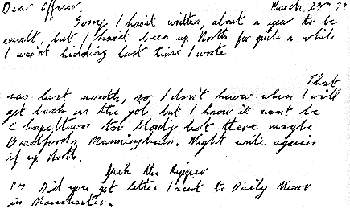 Dear Officer,
Sorry I havn't written, about a year to be
exact, but I hav'nt been up North for quite a while
I was'nt kidding last time I wrote
That
was last month, so I don't know when I will
get back on the job but I know it wont be
Chapeltown too bloody hot there maybe
Bradfords Manningham. Might write again
if up North.
Jack the Ripper
PS Did you get letter I sent to Daily Mirror
in Manchester.